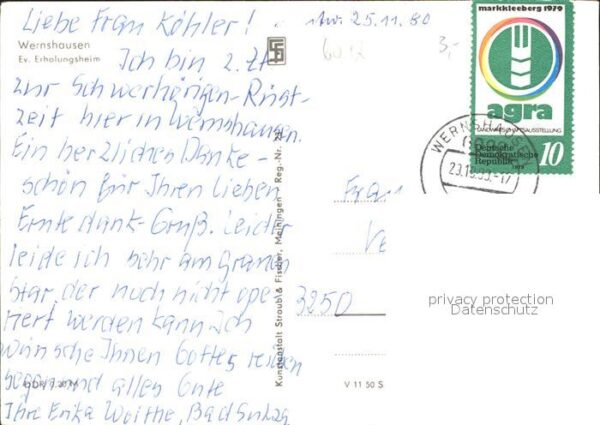 Liebe Frau Köhler!
Wernshausen
Ev. Erholungsheim
Ich bin z. Zt.
zur Schwerhörigen-Rüst-
zeit hier in Wernshausen.
Ein herzliches Danke-
schön für Ihren lieben
Ernte dank-Gruß. Leider
leide ich sehr am Grauen
Star, der noch nicht ope-
riert werden kann. Ich
wünsche Ihnen Gottes reichen
Segen und alles Gute
Ihre Erika Woithe, Bad Sulza
25.11.80
3,-
markkleeberg 1979
agra
LANDWIRTSCHAFTSAUSSTELLUNG
Deutsche
Demokratische
Republik
10
WERNSHAUSEN
Kunstanstalt Straubl & Fischer, Meiningen
Reg.-Nr.
Frau
3250
V 11 50 S
privacy protection
Datenschutz